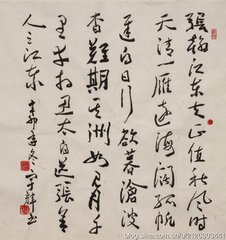 張翰江东去正值秋风时
天清一雁遠海阔孤帆
遲白日行欲暮滄波
杳難期吴洲如見月千
里幸相思太白送張舍
人之江东
辛卯年冬
blog.sina.com.cn/u/2120903441